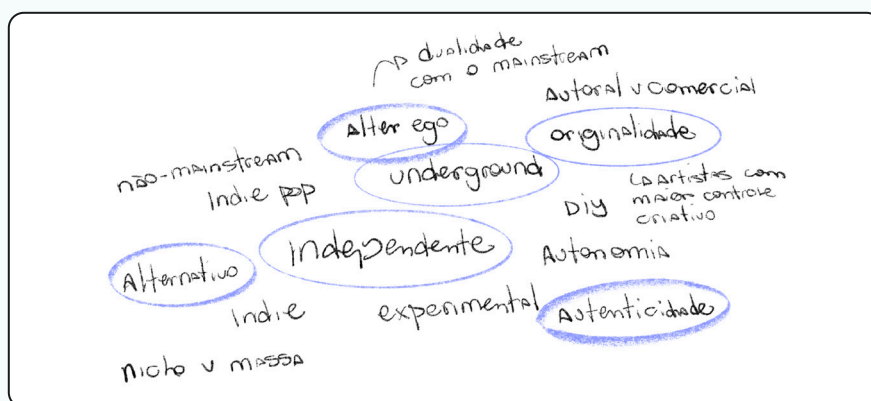 dualidade
com o mainstream
Autoral v comercial
Alter ego
originalidade
não-mainstream
underground
Indie pop
DIY
Artistas com
maior controle
criativo
independente
Autonomia
Alternativo
Indie
experimental
Autenticidade
nicho v massa